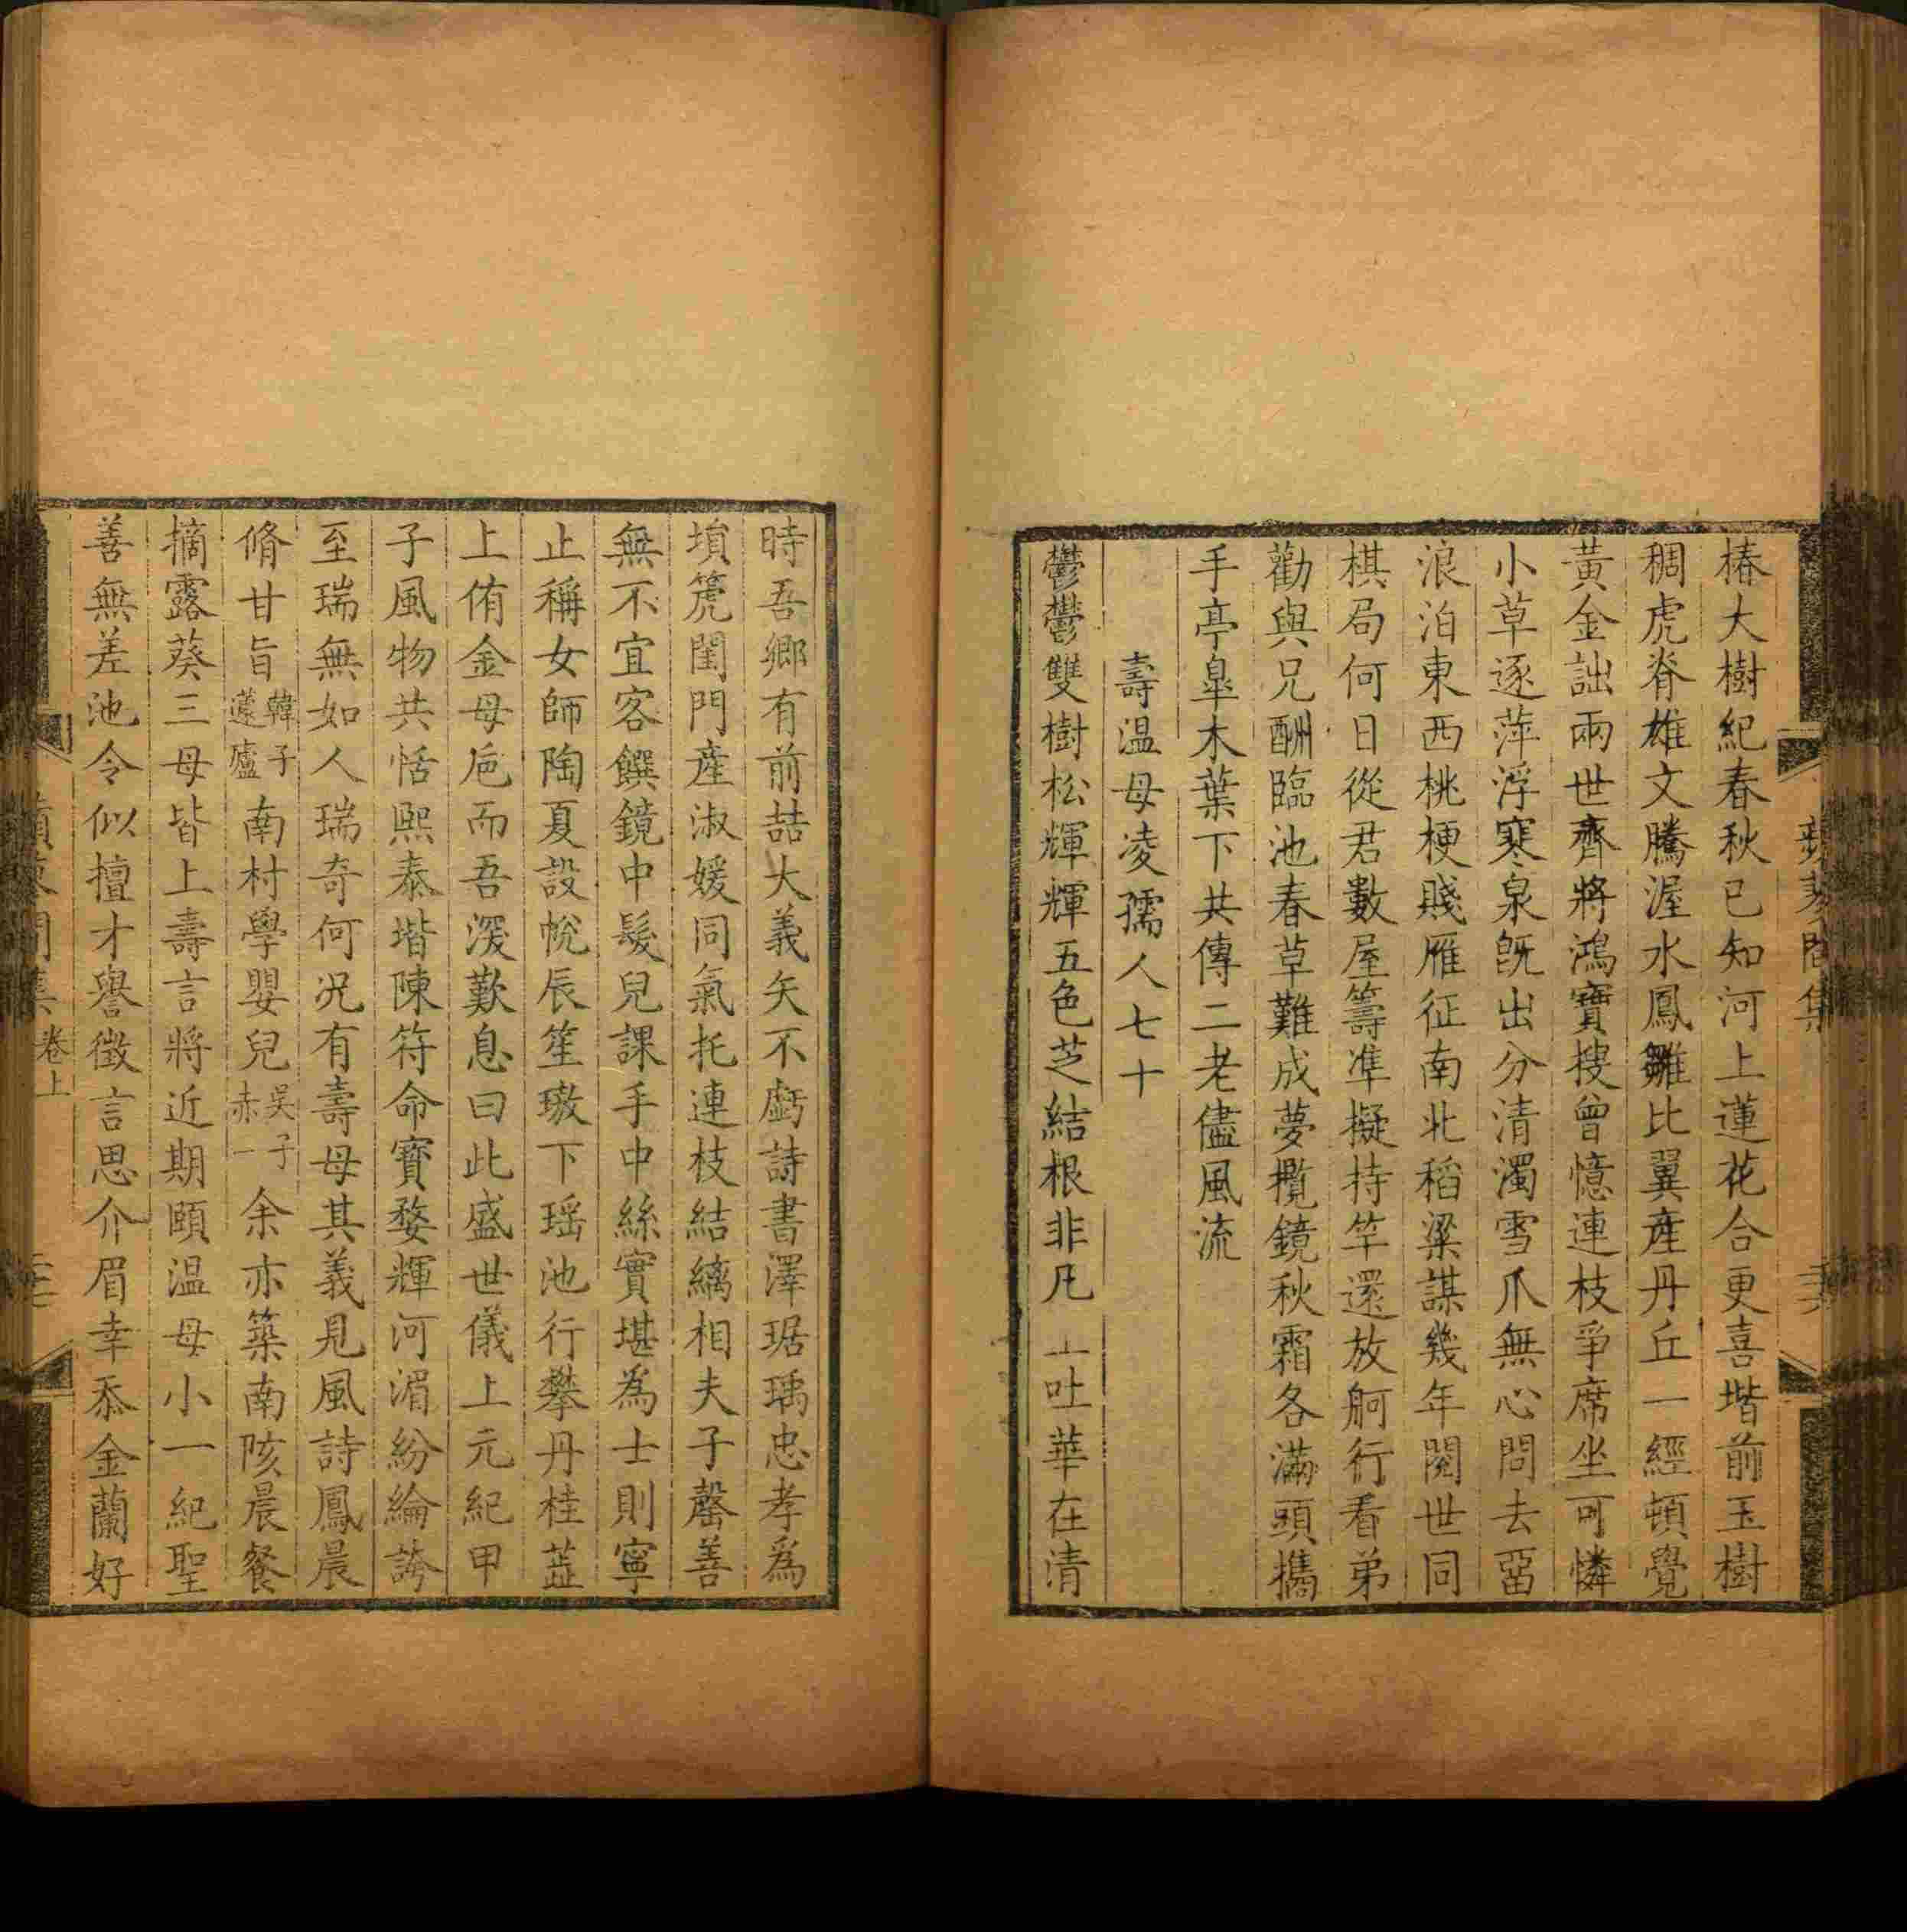 椿大樹紀春秋已知河上蓮花合更喜堦前玉樹
稠虎脊雄文騰渥水鳳雛比翼產丹丘一經頓覺
黃金詘兩世齊將鴻寶搜曾憶連枝爭席坐可憐
小草逐萍浮寒泉旣出分清濁雪爪無心問去畱
浪泊東西桃梗賤雁征南北稻粱謀幾年閱世同
棋局何日從君數屋籌準擬持竿還放舸行看弟
勸與兄酬臨池春草難成夢攬鏡秋霜各滿頭攜
手亭臯木葉下共傳二老儘風流
壽温母凌孺人七十
鬱鬱雙樹松輝輝五色芝結根非凡 吐華在清
時吾鄉有前喆大義矢不虧詩書澤琚瑀忠孝爲
塤箎閨門產淑媛同氣托連枝結縭相夫子罄善
無不宜客饌鏡中髮兒課手中絲實堪為士則寧
止稱女師陶夏設帨辰笙璈下瑶池行攀丹桂蕋
上侑金母卮而吾深歎息曰此盛世儀上元紀甲
子風物共恬熙泰堦陳符命寳婺輝河湄紛綸誇
至瑞無如人瑞奇何况有壽母其義見風詩鳳晨
脩甘旨韓子蘧廬南村學嬰兒吳子赤一余亦築南陔晨餐
摘露葵三母皆上壽言將近期頤温母小一紀聖
善無差池令似擅才譽徵言思介眉幸忝金蘭好
卷上